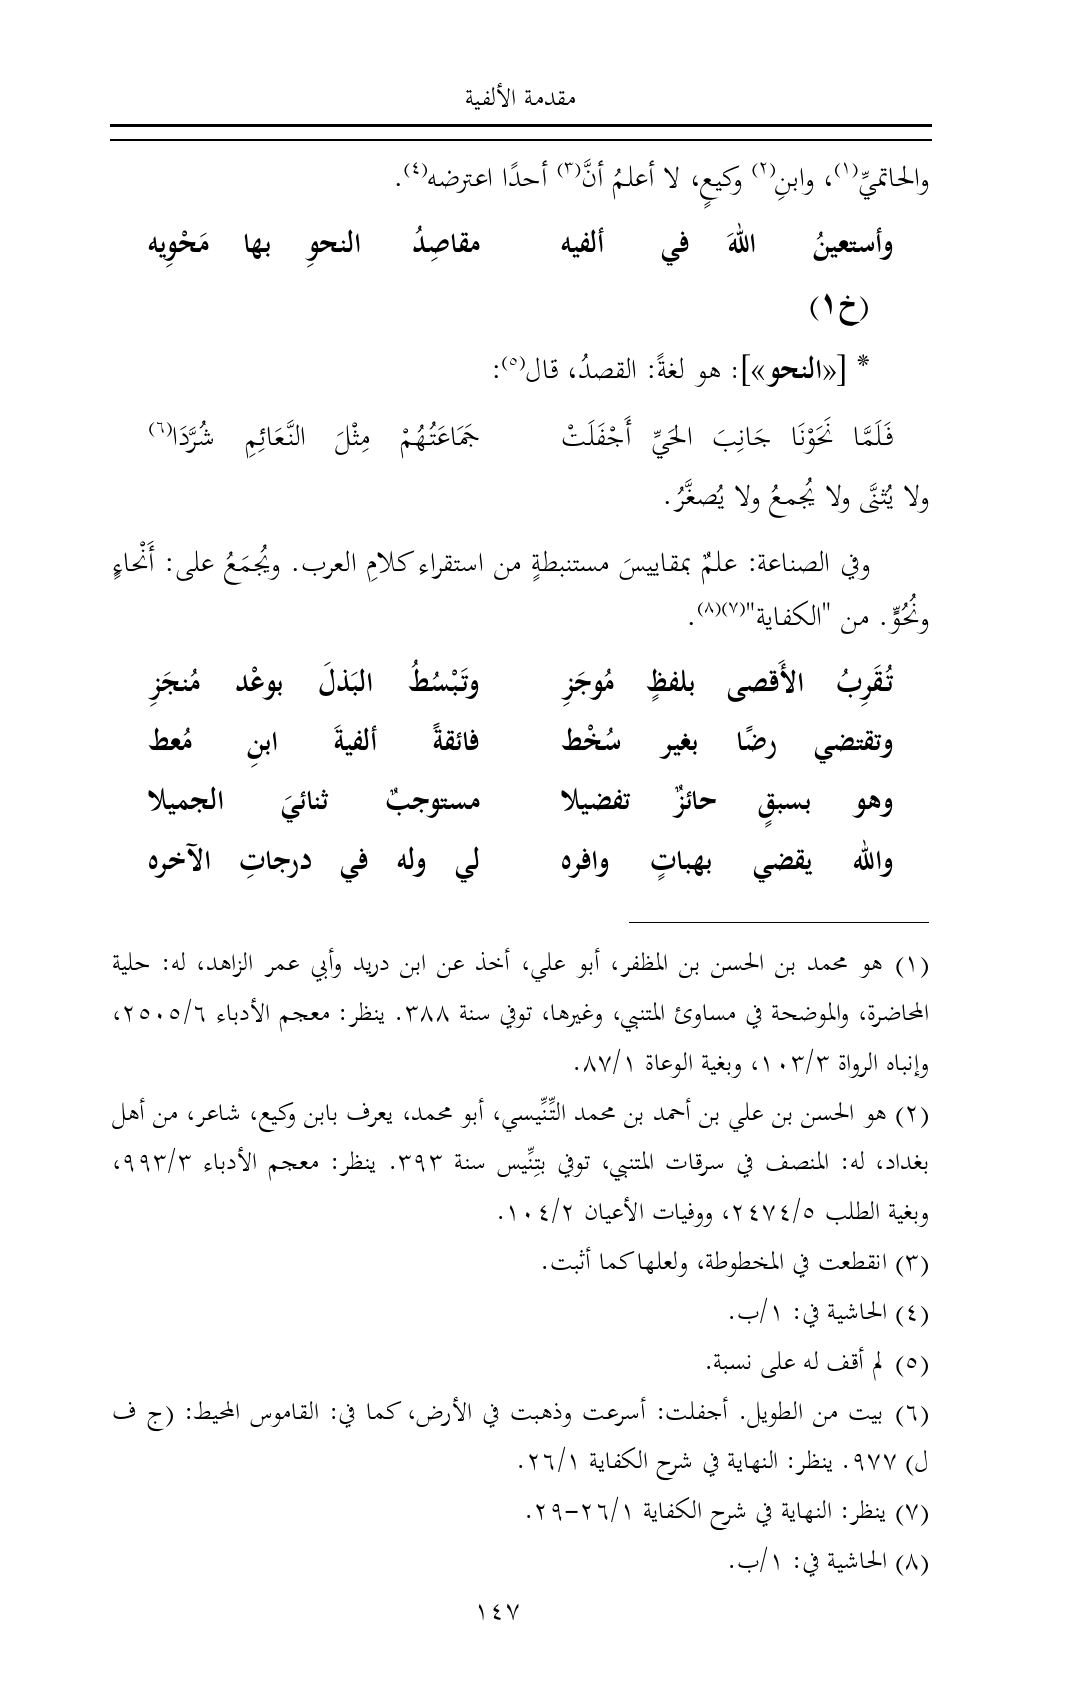 مقدمة الألفية
والحاتميِّ(١)، وابنِ(٢) وكيعٍ، لا أعلمُ أنَّ(٣) أحدًا اعترضه(٤).
وأستعينُ اللهَ في ألفيه مقاصِدُ النحوِ بها مَحْوِيه
(خ١)
* [«النحو»]: هو لغةً: القصدُ، قال(٥):
فَلَمَّا نَحَوْنَا جَانِبَ الحَيِّ أَجْفَلَتْ جَمَاعَتُهُمْ مِثْلَ النَّعَائِمِ شُرَّدَا(٦)
ولا يُثنَّى ولا يُجمعُ ولا يُصغَّرُ.
وفي الصناعة: علمٌ بمقاييسَ مستنبطةٍ من استقراء كلامِ العرب. ويُجمَعُ على: أَنْحاءٍ
ونُحُوٍّ. من "الكفاية"(٧)(٨).
تُقَرِبُ الأَقصى بلفظٍ مُوجَزِ وتَبْسُطُ البَذلَ بوعْد مُنجَزِ
وتقتضي رضًا بغير سُخْط فائقةً ألفيةَ ابنِ مُعط
وهو بسبقٍ حائزٌ تفضيلا مستوجبٌ ثنائيَ الجميلا
والله يقضي بهباتٍ وافره لي وله في درجاتِ الآخره
(١) هو محمد بن الحسن بن المظفر، أبو علي، أخذ عن ابن دريد وأبي عمر الزاهد، له: حلية
المحاضرة، والموضحة في مساوئ المتنبي، وغيرها، توفي سنة ٣٨٨. ينظر: معجم الأدباء ٢٥٠٥/٦،
وإنباه الرواة ١٠٣/٣، وبغية الوعاة ٨٧/١.
(٢) هو الحسن بن علي بن أحمد بن محمد التِّنِّيسي، أبو محمد، يعرف بابن وكيع، شاعر، من أهل
بغداد، له: المنصف في سرقات المتنبي، توفي بتِنِّيس سنة ٣٩٣. ينظر: معجم الأدباء ٩٩٣/٣،
وبغية الطلب ٢٤٧٤/٥، ووفيات الأعيان ١٠٤/٢.
(٣) انقطعت في المخطوطة، ولعلها كما أثْبت.
(٤) الحاشية في: ١/ب.
(٥) لم أقف له على نسبة.
(٦) بيت من الطويل. أجفلت: أسرعت وذهبت في الأرض، كما في: القاموس المحيط: (ج ف
ل) ٩٧٧. ينظر: النهاية في شرح الكفاية ٢٦/١.
(٧) ينظر: النهاية في شرح الكفاية ٢٦/١-٢٩.
(٨) الحاشية في: ١/ب.
١٤٧